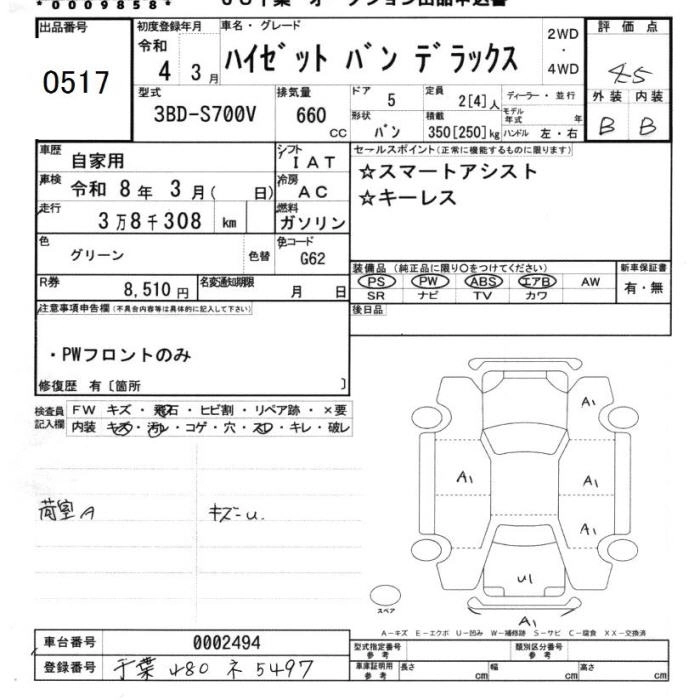 *0009858*
出品番号
0517
初度登録年月
令和
4 3月
車名・グレード
ハイゼット バン デラックス
2WD
・
4WD
評価点
4.5
外装 内装
B B
型式
3BD-S700V
排気量
660
CC
ドア
5
定員
2[4]人
ディーラー・並行
モデル年式 年
形状
バン
積載
350[250]kg
ハンドル 左・右
車歴
自家用
シフト
IAT
車検
令和 8年 3月( 日)
冷房
AC
走行
3万8千308 km
燃料
ガソリン
セールスポイント(正常に機能するものに限ります)
☆スマートアシスト
☆キーレス
色
グリーン
色替
色コード
G62
R券
8,510円
名変通知期限
月 日
装備品(純正品に限り○をつけてください)
PS PW ABS エアB AW
SR ナビ TV カワ
新車保証書
有・無
後日品
注意事項申告欄(不具合内容等は具体的に記入して下さい)
・PWフロントのみ
修復歴 有〔箇所 〕
検査員
記入欄
FW キズ・飛石・ヒビ割・リペア跡・×要
内装 キズ・汚レ・コゲ・穴・スレ・キレ・破レ
荷室A キズ-U.
A1
A1
A1
A1
U1
A1
スペア
A-キズ E-エクボ U-凹み W-補修跡 S-サビ C-腐食 XX-交換済
車台番号
0002494
登録番号
千葉 480 ネ 5497
型式指定番号
参考
類別区分番号
参考
車庫証明用
参考
長さ cm
幅 cm
高さ cm